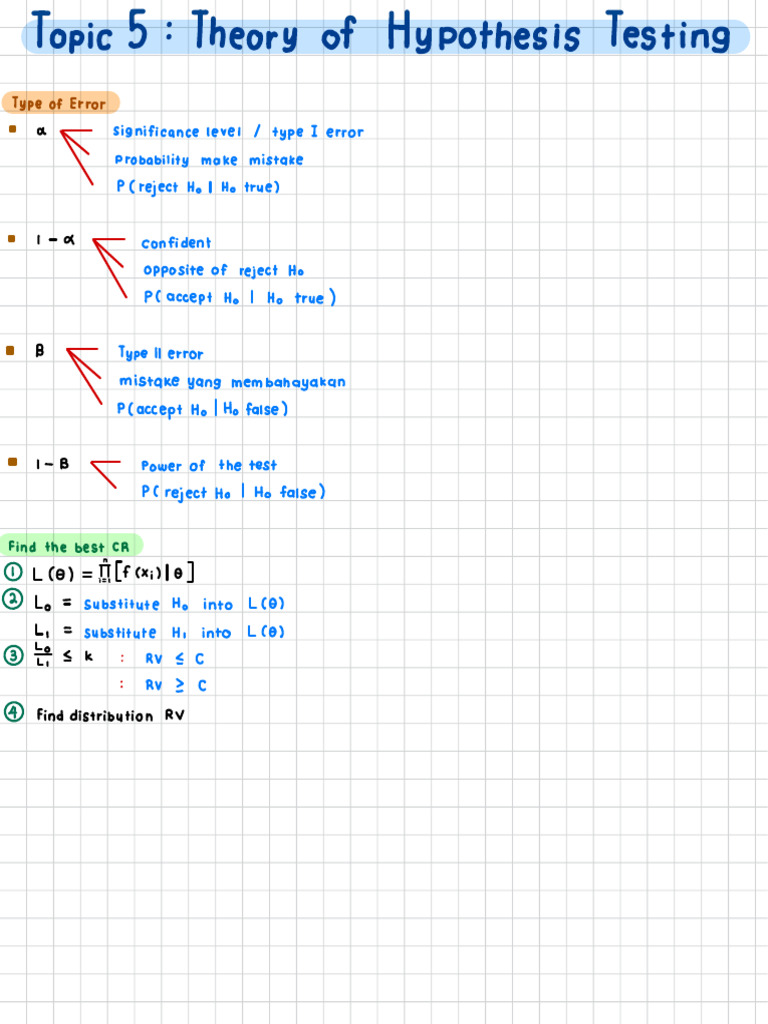 Topic 5 : Theory of Hypothesis Testing
Type of Error
α
significance level / type I error
probability make mistake
P(reject H₀ | H₀ true)
1 - α
confident
opposite of reject H₀
P(accept H₀ | H₀ true)
β
Type II error
mistake yang membahayakan
P(accept H₀ | H₀ false)
1 - β
Power of the test
P(reject H₀ | H₀ false)
Find the best CR
① L(θ) = ∏ⁿᵢ₌₁ [f(xᵢ)|θ]
② L₀ = substitute H₀ into L(θ)
L₁ = substitute H₁ into L(θ)
③ L₀/L₁ ≤ k : RV ≤ C
: RV ≥ C
④ Find distribution RV